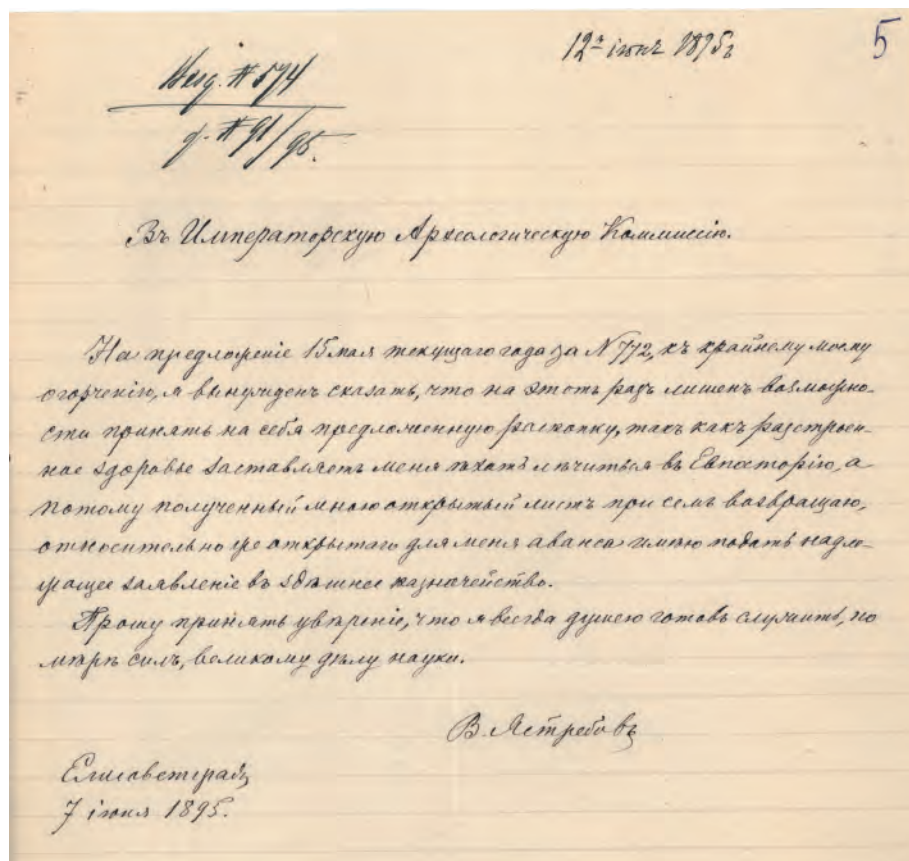 12го іюня 1895г
5
Вход. № 574
д. № 91/95.
Въ Императорскую Археологическую Коммиссію.
На предложеніе 15 мая текущаго года за N 772, къ крайнему моему
огорченію, я вынужденъ сказать, что на этотъ разъ лишенъ возможно-
сти принять на себя предложенную раскопку, такъ какъ разстроен-
ное здоровье заставляетъ меня ѣхать лѣчиться въ Евпаторію, а
потому полученный мною открытый листъ при семъ возвращаю,
относительно же открытаго для меня аванса имѣю подать надле-
жащее заявленіе въ здѣшнее казначейство.
Прошу принять увѣреніе, что я всегда душею готовъ служить, по
мѣрѣ силъ, великому дѣлу науки.
В. Ястребовъ
Елисаветградъ
7 іюня 1895.